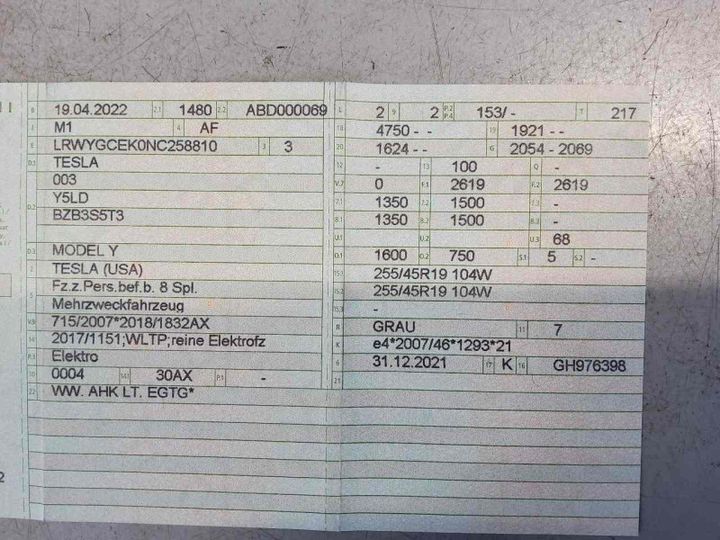 B 19.04.2022 2.1 1480 2.2 ABD000069
J M1 4 AF
E LRWYGCEK0NC258810 3 3
D.1 TESLA
003
D.2 Y5LD
BZB3S5T3
D.3 MODEL Y
2 TESLA (USA)
5 Fz.z.Pers.bef.b. 8 Spl.
Mehrzweckfahrzeug
V.9 715/2007*2018/1832AX
14 2017/1151;WLTP;reine Elektrofz
P.3 Elektro
10 0004 14.1 30AX P.1 -
22 WW. AHK LT. EGTG*
L 2 9 2 P.2 P.4 153/- T 217
18 4750 - - 19 1921 - -
20 1624 - - G 2054 - 2069
12 - 13 100 Q -
V.7 0 F.1 2619 F.2 2619
7.1 1350 7.2 1500 7.3 -
8.1 1350 8.2 1500 8.3 -
U.1 U.2 U.3 68
O.1 1600 O.2 750 S.1 5 S.2 -
15.1 255/45R19 104W
15.2 255/45R19 104W
15.3 -
R GRAU 11 7
K e4*2007/46*1293*21
6 31.12.2021 17 K 16 GH976398
21